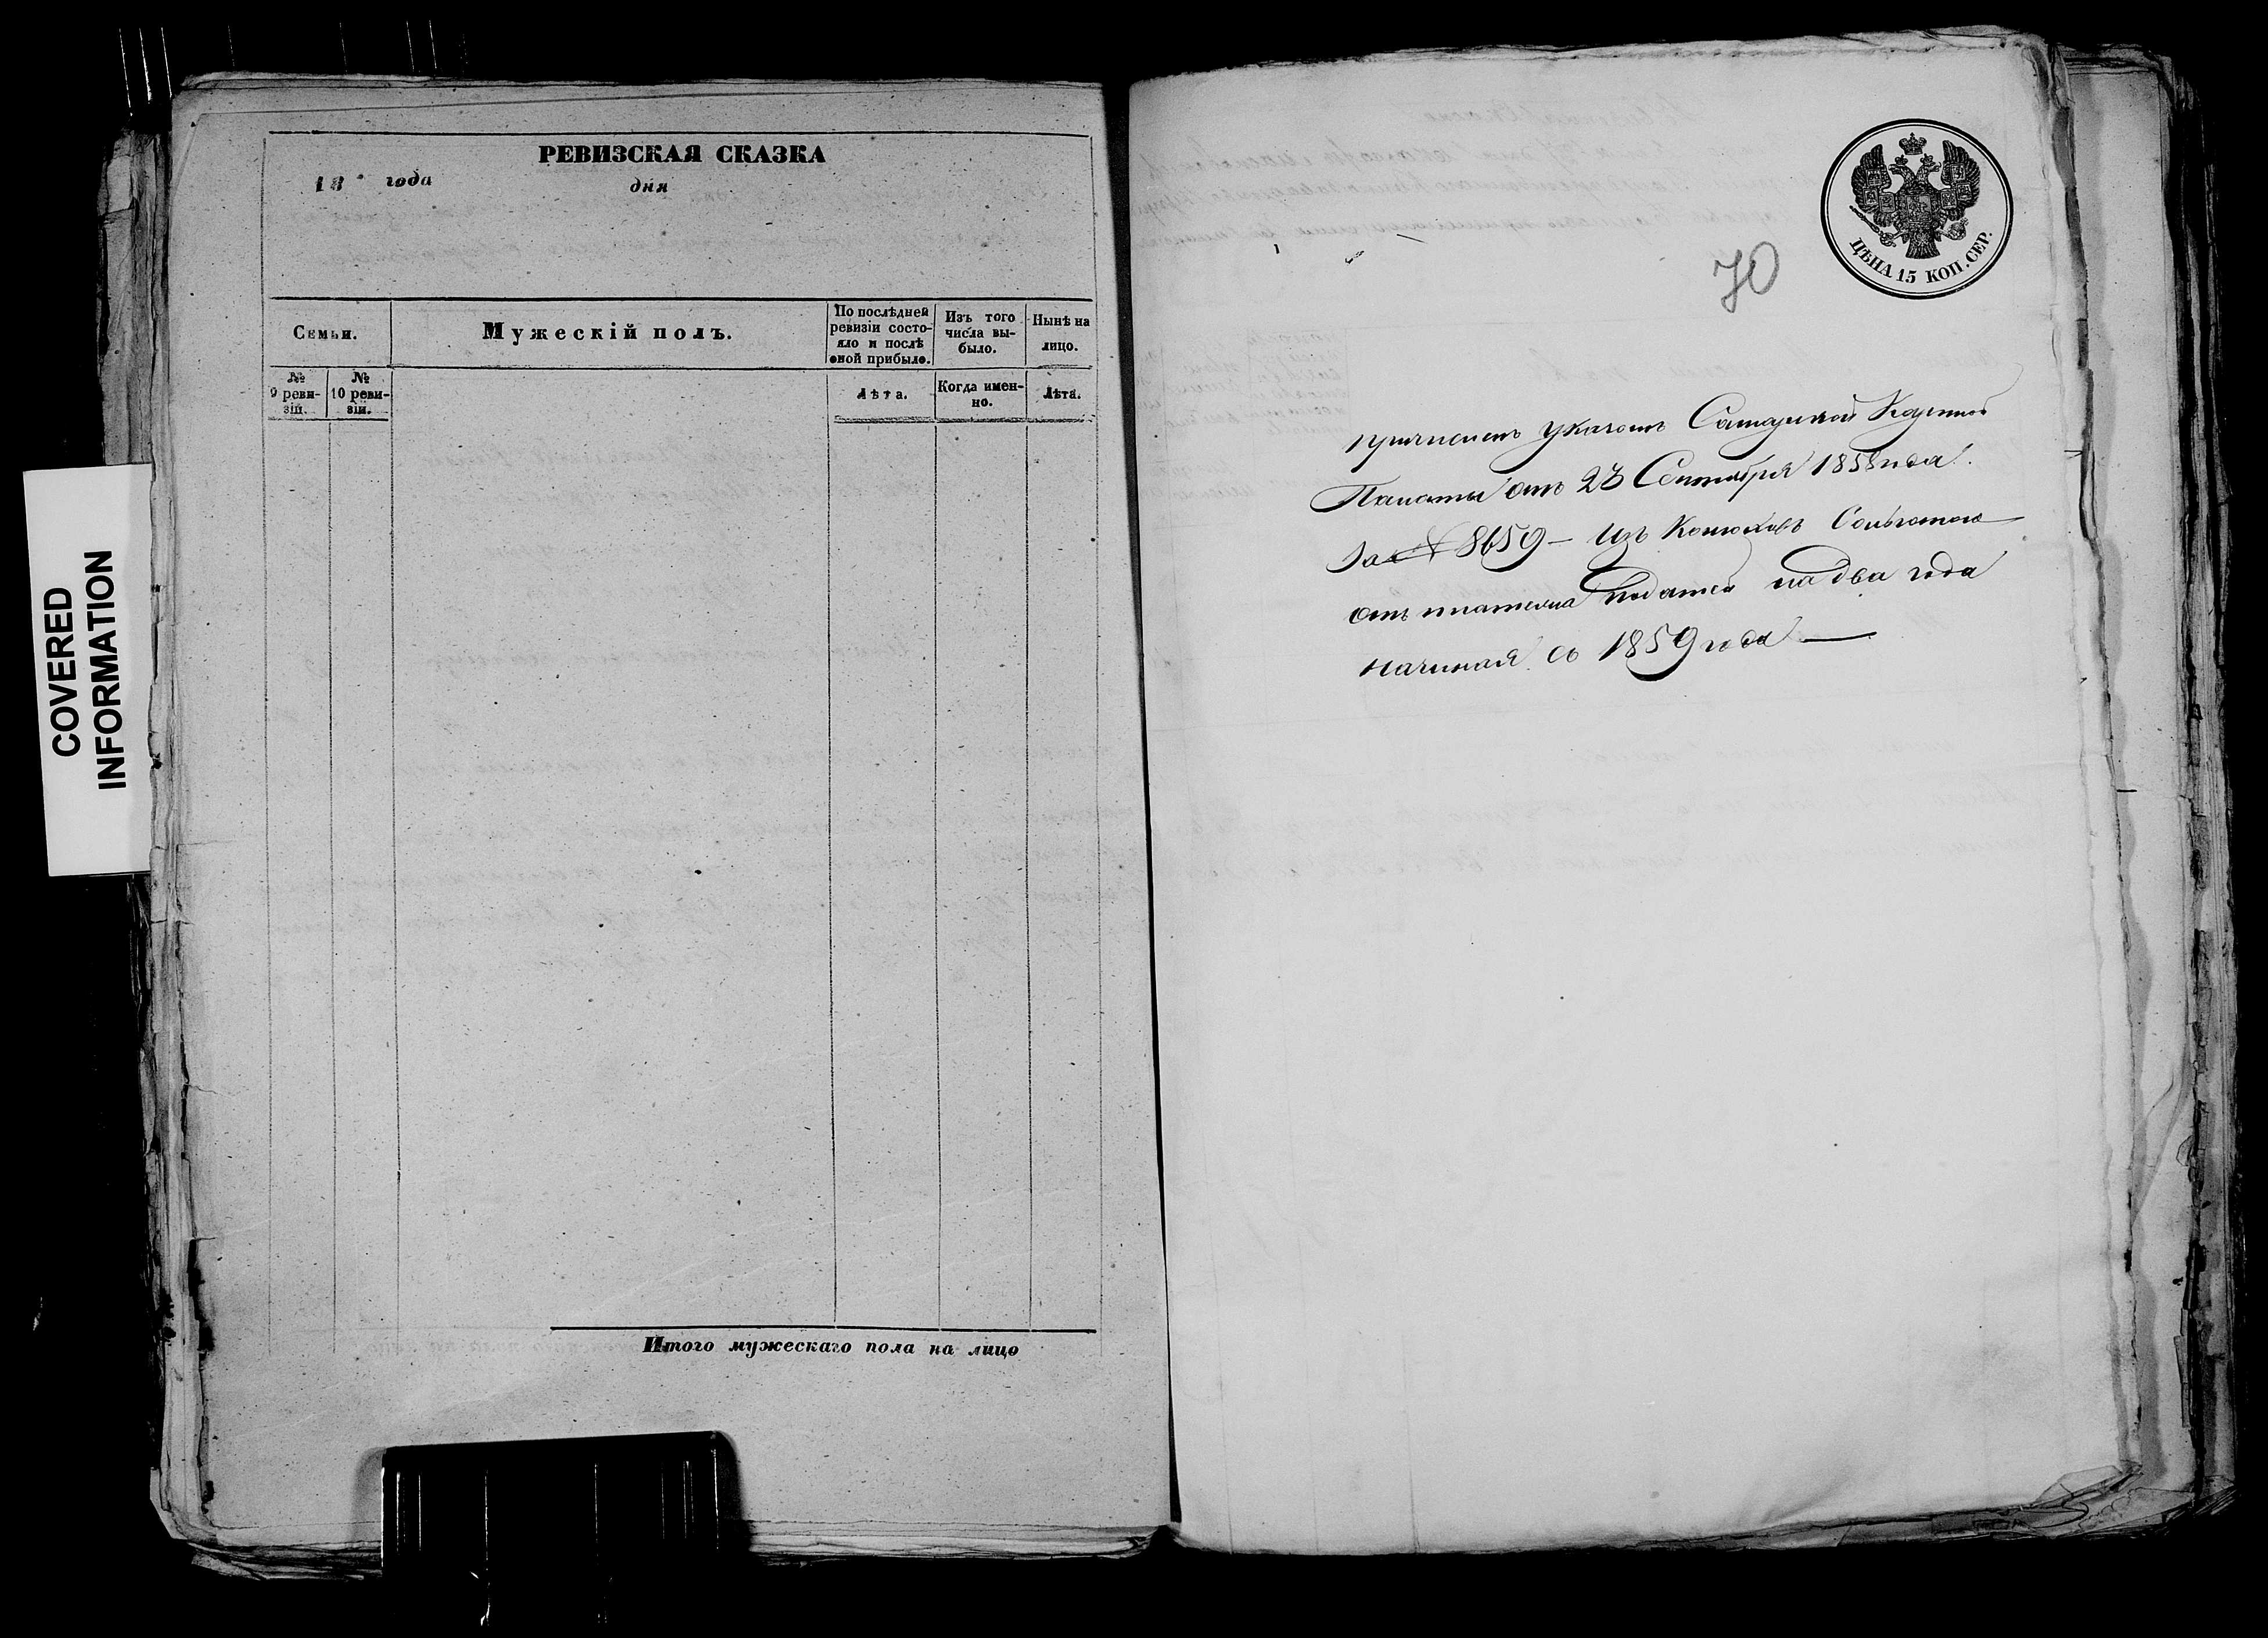 COVERED
INFORMATION
РЕВИЗСКАЯ СКАЗКА
18 года дня
Семьи.
Мужескій полъ.
По послѣдней
ревизіи состо-
яло и послѣ
оной прибыло.
Изъ того
числа вы-
было.
Нынѣ на
лицо.
№
9 реви-
зіи.
№
10 реви-
зіи.
Лѣта.
Когда имен-
но.
Лѣта.
Итого мужескаго пола на лицо
ЦѢНА 15 КОП. СЕР.
70
причисленъ указомъ Самарской Казенной
Палаты отъ 23 Сентября 1858 года
За № 8659 – Изъ Конюховъ Сольготою
отъ платежа податей на два года
начиная съ 1859 года —